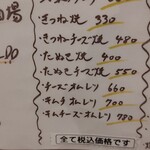 ・きつね焼 330
・きつねチーズ焼 480
・たぬき焼 400
・たぬきチーズ焼 550
・チーズオムレツ 660
・キムチオムレツ 700
・キムチーズオムレツ 780
全て税込価格です